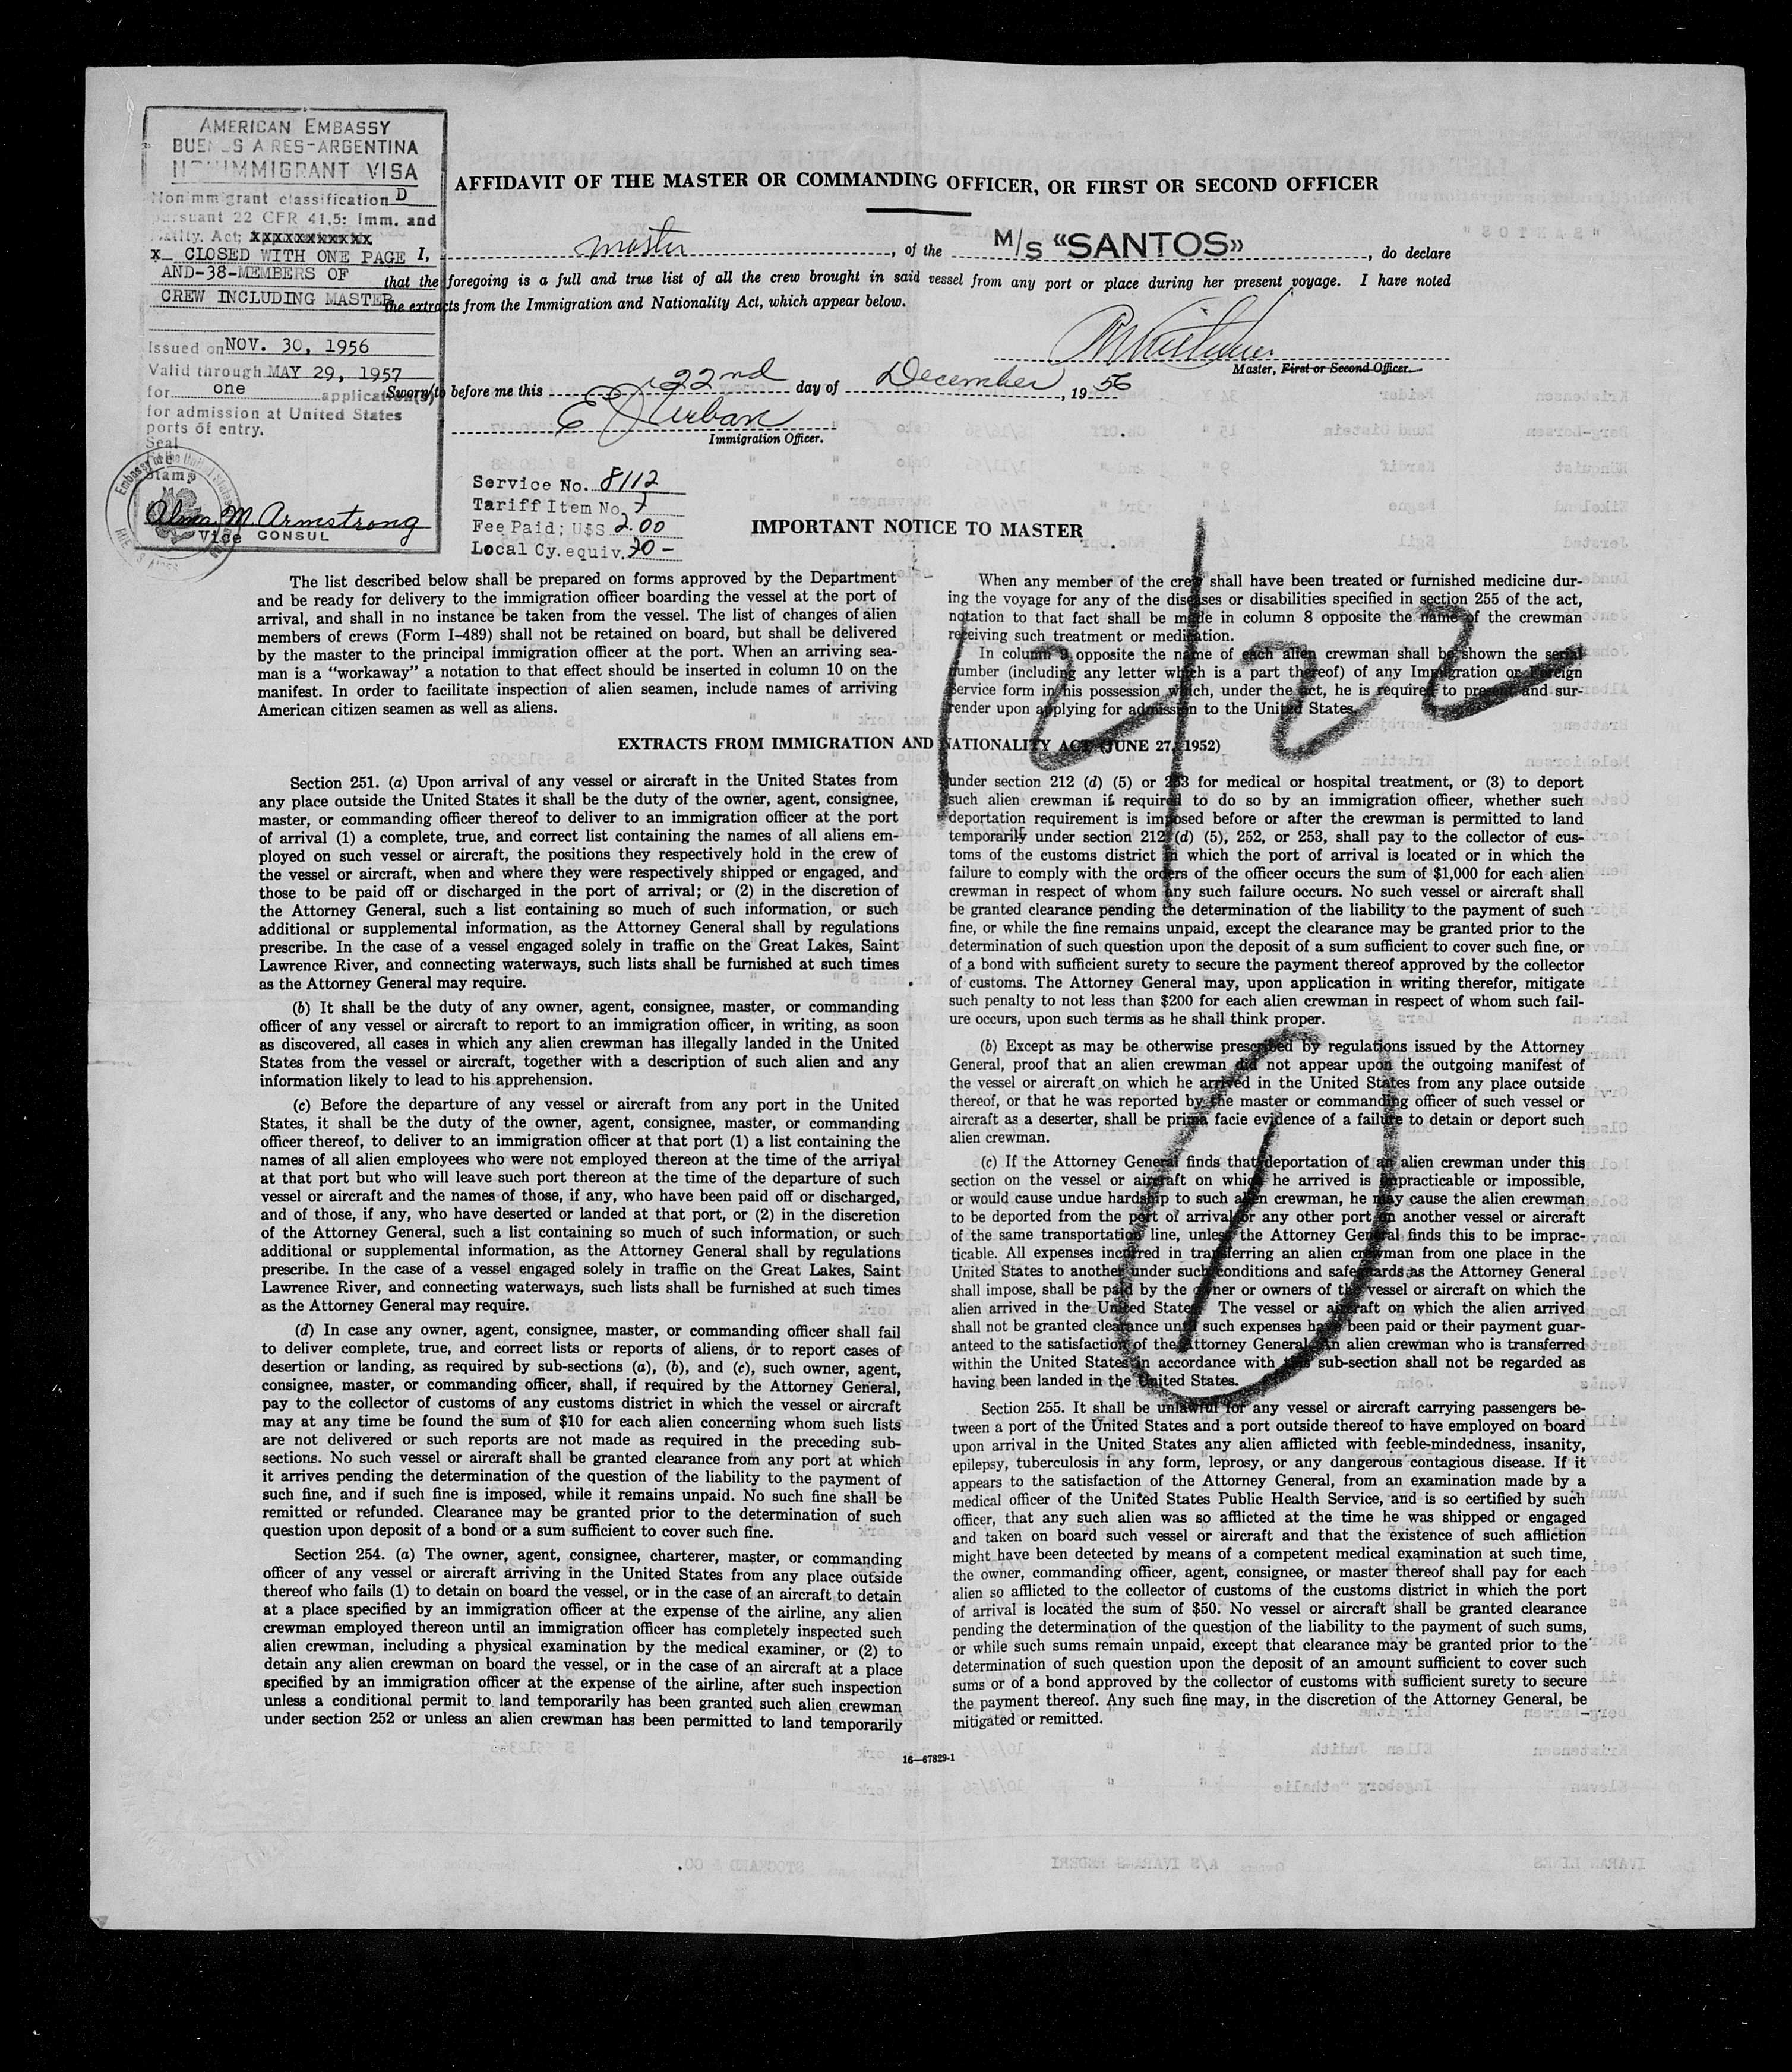 AMERICAN EMBASSY
BUENOS AIRES-ARGENTINA
NONIMMIGRANT VISA
Nonimmigrant classification D
pursuant 22 CFR 41.5: Imm. and
Natlity. Act; xxxxxxxxxxx
x CLOSED WITH ONE PAGE
AND-38-MEMBERS OF
CREW INCLUDING MASTER
Issued on NOV. 30, 1956
Valid through MAY 29, 1957
for one application(s)
for admission at United States
ports of entry.
Seal
Stamp
Alma M. Armstrong
Vice CONSUL
AFFIDAVIT OF THE MASTER OR COMMANDING OFFICER, OR FIRST OR SECOND OFFICER
I, master, of the M/S «SANTOS», do declare
that the foregoing is a full and true list of all the crew brought in said vessel from any port or place during her present voyage. I have noted
the extracts from the Immigration and Nationality Act, which appear below.
Master, First or Second Officer.
Sworn to before me this 22nd day of December, 1956
E J Urban
Immigration Officer.
Service No. 8112
Tariff Item No. 7
Fee Paid; US$ 2.00
Local Cy. equiv. 70-
IMPORTANT NOTICE TO MASTER
The list described below shall be prepared on forms approved by the Department
and be ready for delivery to the immigration officer boarding the vessel at the port of
arrival, and shall in no instance be taken from the vessel. The list of changes of alien
members of crews (Form I-489) shall not be retained on board, but shall be delivered
by the master to the principal immigration officer at the port. When an arriving sea-
man is a "workaway" a notation to that effect should be inserted in column 10 on the
manifest. In order to facilitate inspection of alien seamen, include names of arriving
American citizen seamen as well as aliens.
When any member of the crew shall have been treated or furnished medicine dur-
ing the voyage for any of the diseases or disabilities specified in section 255 of the act,
notation to that fact shall be made in column 8 opposite the name of the crewman
receiving such treatment or medication.
In column 9 opposite the name of each alien crewman shall be shown the serial
number (including any letter which is a part thereof) of any Immigration or Foreign
Service form in his possession which, under the act, he is required to present and sur-
render upon applying for admission to the United States.
12/22
EXTRACTS FROM IMMIGRATION AND NATIONALITY ACT (JUNE 27, 1952)
Section 251. (a) Upon arrival of any vessel or aircraft in the United States from
any place outside the United States it shall be the duty of the owner, agent, consignee,
master, or commanding officer thereof to deliver to an immigration officer at the port
of arrival (1) a complete, true, and correct list containing the names of all aliens em-
ployed on such vessel or aircraft, the positions they respectively hold in the crew of
the vessel or aircraft, when and where they were respectively shipped or engaged, and
those to be paid off or discharged in the port of arrival; or (2) in the discretion of
the Attorney General, such a list containing so much of such information, or such
additional or supplemental information, as the Attorney General shall by regulations
prescribe. In the case of a vessel engaged solely in traffic on the Great Lakes, Saint
Lawrence River, and connecting waterways, such lists shall be furnished at such times
as the Attorney General may require.
(b) It shall be the duty of any owner, agent, consignee, master, or commanding
officer of any vessel or aircraft to report to an immigration officer, in writing, as soon
as discovered, all cases in which any alien crewman has illegally landed in the United
States from the vessel or aircraft, together with a description of such alien and any
information likely to lead to his apprehension.
(c) Before the departure of any vessel or aircraft from any port in the United
States, it shall be the duty of the owner, agent, consignee, master, or commanding
officer thereof, to deliver to an immigration officer at that port (1) a list containing the
names of all alien employees who were not employed thereon at the time of the arrival
at that port but who will leave such port thereon at the time of the departure of such
vessel or aircraft and the names of those, if any, who have been paid off or discharged,
and of those, if any, who have deserted or landed at that port, or (2) in the discretion
of the Attorney General, such a list containing so much of such information, or such
additional or supplemental information, as the Attorney General shall by regulations
prescribe. In the case of a vessel engaged solely in traffic on the Great Lakes, Saint
Lawrence River, and connecting waterways, such lists shall be furnished at such times
as the Attorney General may require.
(d) In case any owner, agent, consignee, master, or commanding officer shall fail
to deliver complete, true, and correct lists or reports of aliens, or to report cases of
desertion or landing, as required by sub-sections (a), (b), and (c), such owner, agent,
consignee, master, or commanding officer, shall, if required by the Attorney General,
pay to the collector of customs of any customs district in which the vessel or aircraft
may at any time be found the sum of $10 for each alien concerning whom such lists
are not delivered or such reports are not made as required in the preceding sub-
sections. No such vessel or aircraft shall be granted clearance from any port at which
it arrives pending the determination of the question of the liability to the payment of
such fine, and if such fine is imposed, while it remains unpaid. No such fine shall be
remitted or refunded. Clearance may be granted prior to the determination of such
question upon deposit of a bond or a sum sufficient to cover such fine.
Section 254. (a) The owner, agent, consignee, charterer, master, or commanding
officer of any vessel or aircraft arriving in the United States from any place outside
thereof who fails (1) to detain on board the vessel, or in the case of an aircraft to detain
at a place specified by an immigration officer at the expense of the airline, any alien
crewman employed thereon until an immigration officer has completely inspected such
alien crewman, including a physical examination by the medical examiner, or (2) to
detain any alien crewman on board the vessel, or in the case of an aircraft at a place
specified by an immigration officer at the expense of the airline, after such inspection
unless a conditional permit to land temporarily has been granted such alien crewman
under section 252 or unless an alien crewman has been permitted to land temporarily
under section 212 (d) (5) or 253 for medical or hospital treatment, or (3) to deport
such alien crewman if required to do so by an immigration officer, whether such
deportation requirement is imposed before or after the crewman is permitted to land
temporarily under section 212 (d) (5), 252, or 253, shall pay to the collector of cus-
toms of the customs district in which the port of arrival is located or in which the
failure to comply with the orders of the officer occurs the sum of $1,000 for each alien
crewman in respect of whom any such failure occurs. No such vessel or aircraft shall
be granted clearance pending the determination of the liability to the payment of such
fine, or while the fine remains unpaid, except the clearance may be granted prior to the
determination of such question upon the deposit of a sum sufficient to cover such fine, or
of a bond with sufficient surety to secure the payment thereof approved by the collector
of customs. The Attorney General may, upon application in writing therefor, mitigate
such penalty to not less than $200 for each alien crewman in respect of whom such fail-
ure occurs, upon such terms as he shall think proper.
(b) Except as may be otherwise prescribed by regulations issued by the Attorney
General, proof that an alien crewman did not appear upon the outgoing manifest of
the vessel or aircraft on which he arrived in the United States from any place outside
thereof, or that he was reported by the master or commanding officer of such vessel or
aircraft as a deserter, shall be prima facie evidence of a failure to detain or deport such
alien crewman.
(c) If the Attorney General finds that deportation of an alien crewman under this
section on the vessel or aircraft on which he arrived is impracticable or impossible,
or would cause undue hardship to such alien crewman, he may cause the alien crewman
to be deported from the port of arrival or any other port on another vessel or aircraft
of the same transportation line, unless the Attorney General finds this to be imprac-
ticable. All expenses incurred in transferring an alien crewman from one place in the
United States to another under such conditions and safeguards as the Attorney General
shall impose, shall be paid by the owner or owners of the vessel or aircraft on which the
alien arrived in the United States. The vessel or aircraft on which the alien arrived
shall not be granted clearance until such expenses have been paid or their payment guar-
anteed to the satisfaction of the Attorney General. An alien crewman who is transferred
within the United States in accordance with this sub-section shall not be regarded as
having been landed in the United States.
1
Section 255. It shall be unlawful for any vessel or aircraft carrying passengers be-
tween a port of the United States and a port outside thereof to have employed on board
upon arrival in the United States any alien afflicted with feeble-mindedness, insanity,
epilepsy, tuberculosis in any form, leprosy, or any dangerous contagious disease. If it
appears to the satisfaction of the Attorney General, from an examination made by a
medical officer of the United States Public Health Service, and is so certified by such
officer, that any such alien was so afflicted at the time he was shipped or engaged
and taken on board such vessel or aircraft and that the existence of such affliction
might have been detected by means of a competent medical examination at such time,
the owner, commanding officer, agent, consignee, or master thereof shall pay for each
alien so afflicted to the collector of customs of the customs district in which the port
of arrival is located the sum of $50. No vessel or aircraft shall be granted clearance
pending the determination of the question of the liability to the payment of such sums,
or while such sums remain unpaid, except that clearance may be granted prior to the
determination of such question upon the deposit of an amount sufficient to cover such
sums or of a bond approved by the collector of customs with sufficient surety to secure
the payment thereof. Any such fine may, in the discretion of the Attorney General, be
mitigated or remitted.
16—67829-1